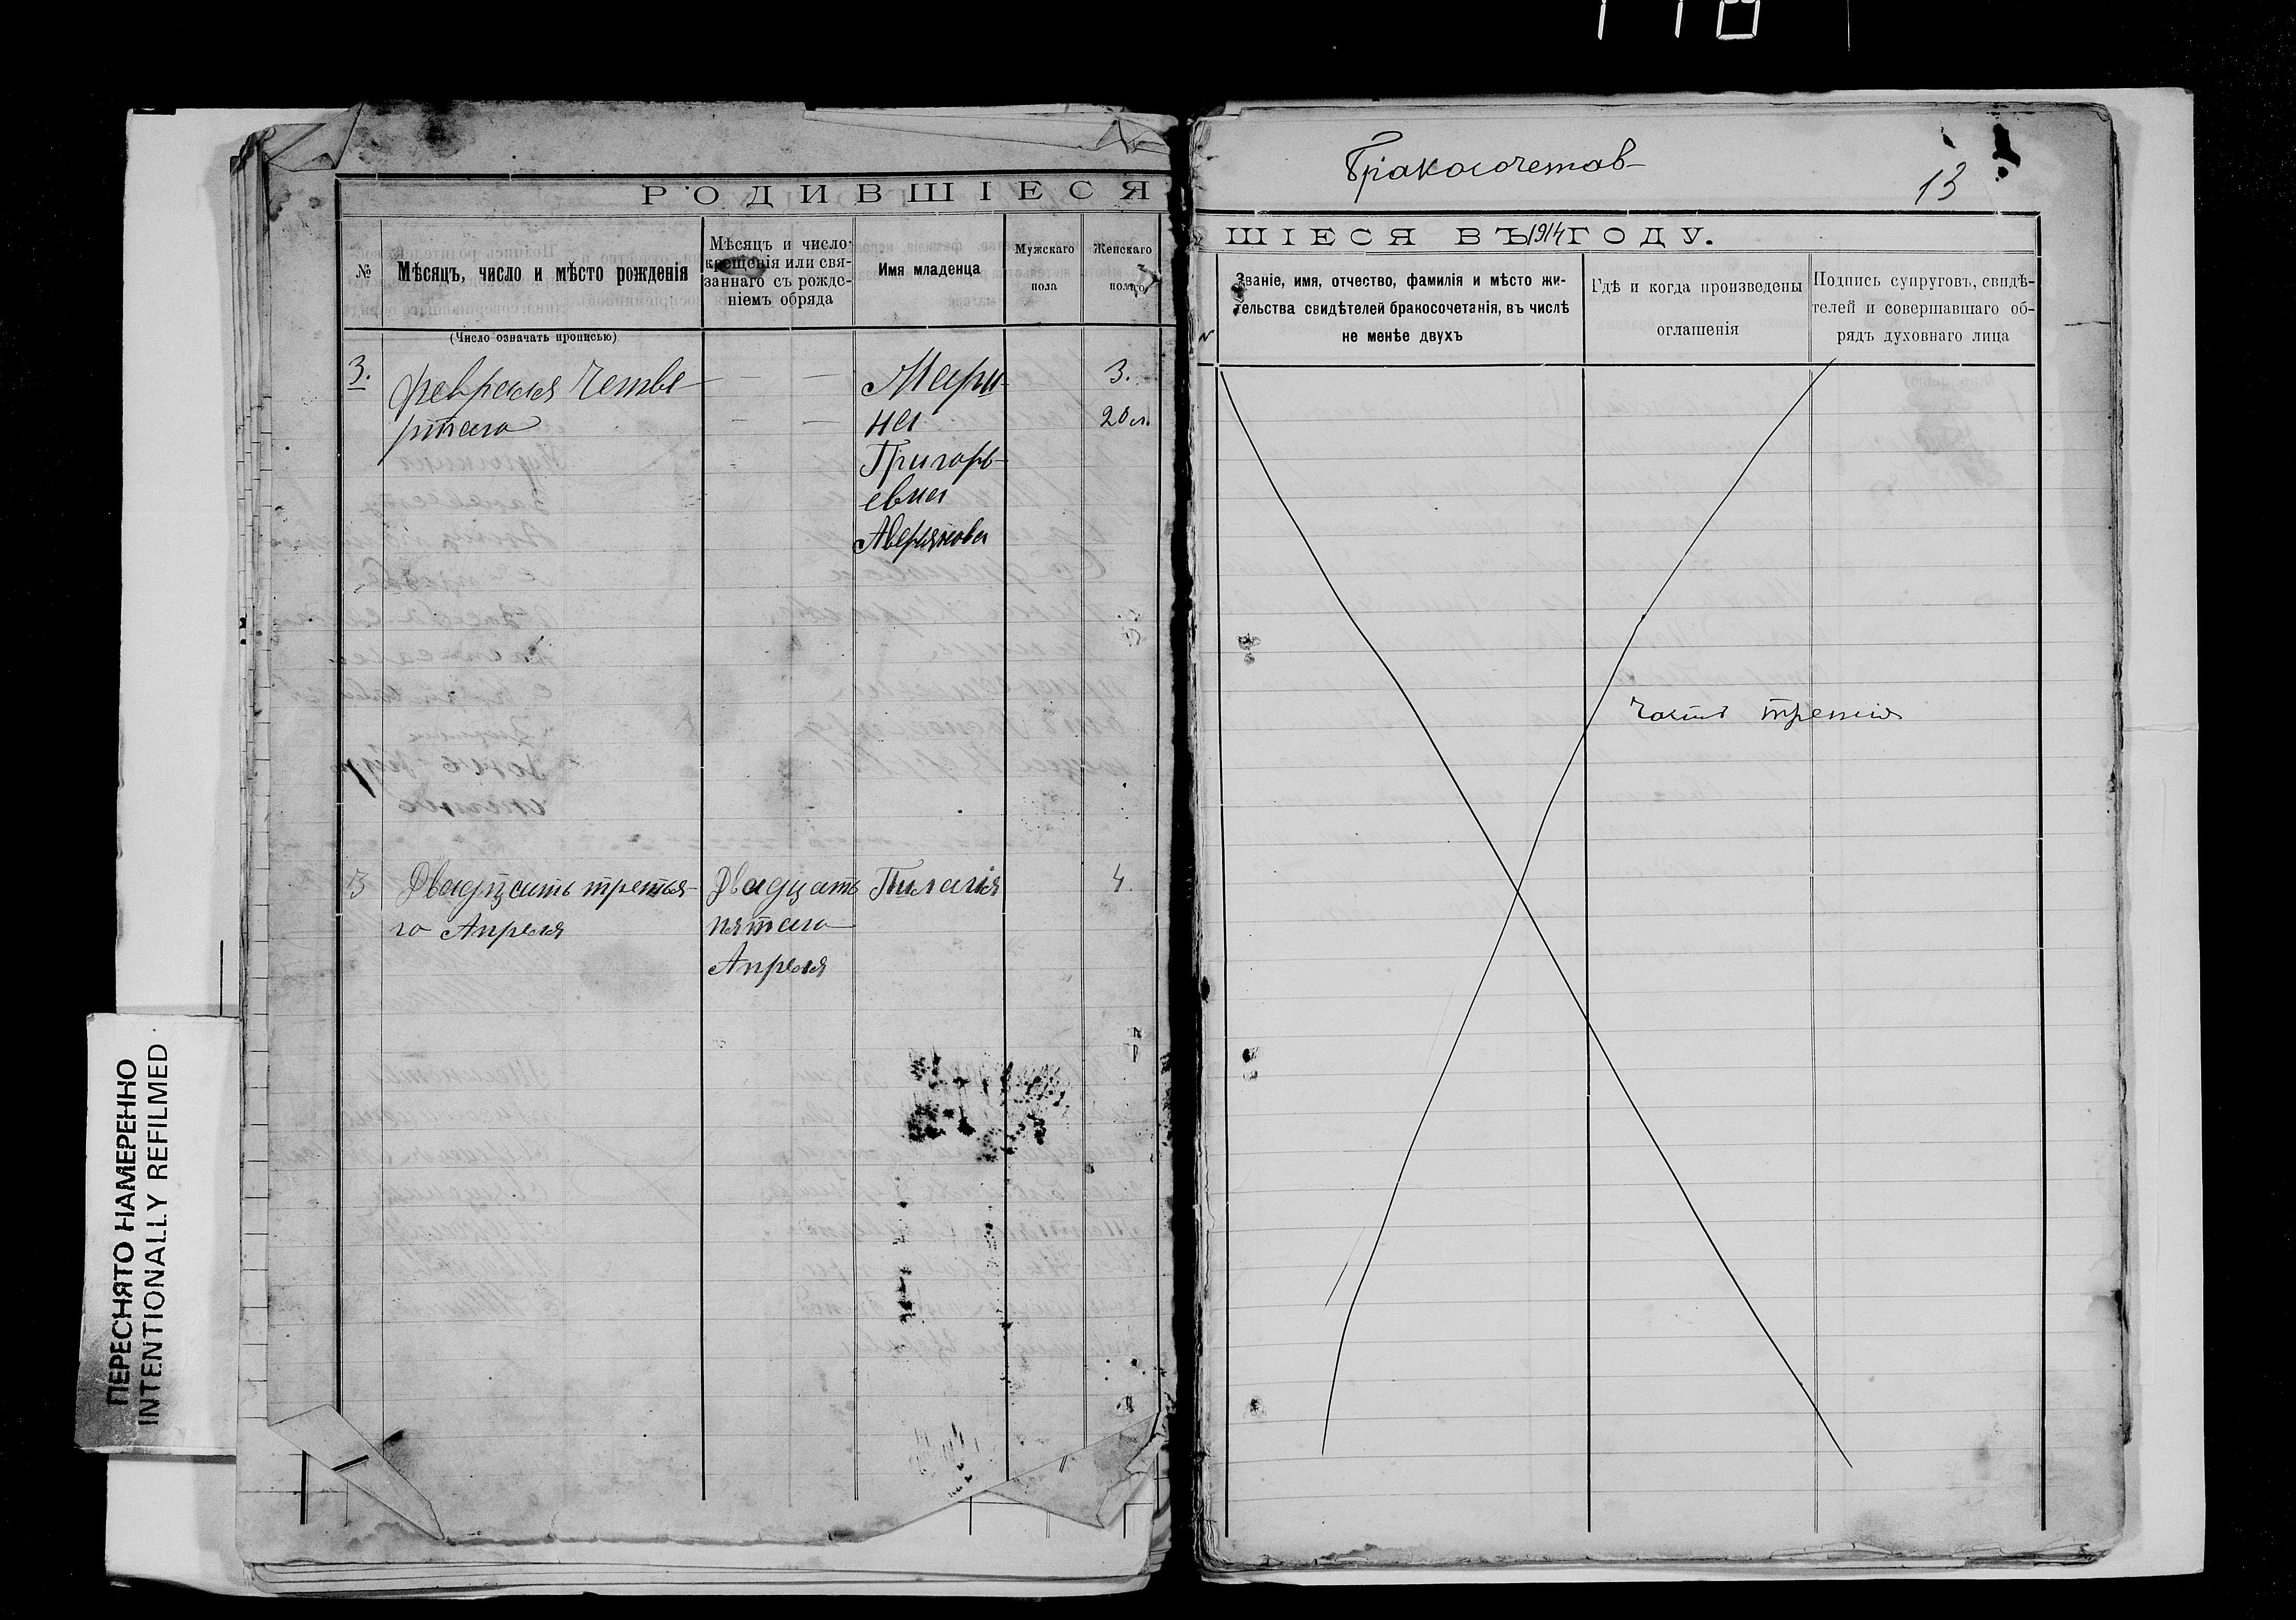 РОДИВШІЕСЯ
№
Мѣсяцъ, число и мѣсто рожденія
Мѣсяцъ и число
крещенія или свя-
заннаго съ рожде-
ніемъ обряда
Имя младенца
Мужскаго
пола
Женскаго
пола
(Число означать прописью)
3. Февраля Четве Мари- 3.
ртаго на 20 л.
Григорь-
евна
Аверянова
Двадцать третья- Двадцать Пилагія 4.
го Апреля пятаго
Апреля
Бракосочетав-
13
ШІЕСЯ ВЪ 1914 ГОДУ.
Званіе, имя, отчество, фамилія и мѣсто жи-
тельства свидѣтелей бракосочетанія, въ числѣ
не менѣе двухъ
Гдѣ и когда произведены
оглашенія
Подпись супруговъ, свидѣ-
телей и совершавшаго об-
рядъ духовнаго лица
ПЕРЕСНЯТО НАМЕРЕННО
INTENTIONALLY REFILMED